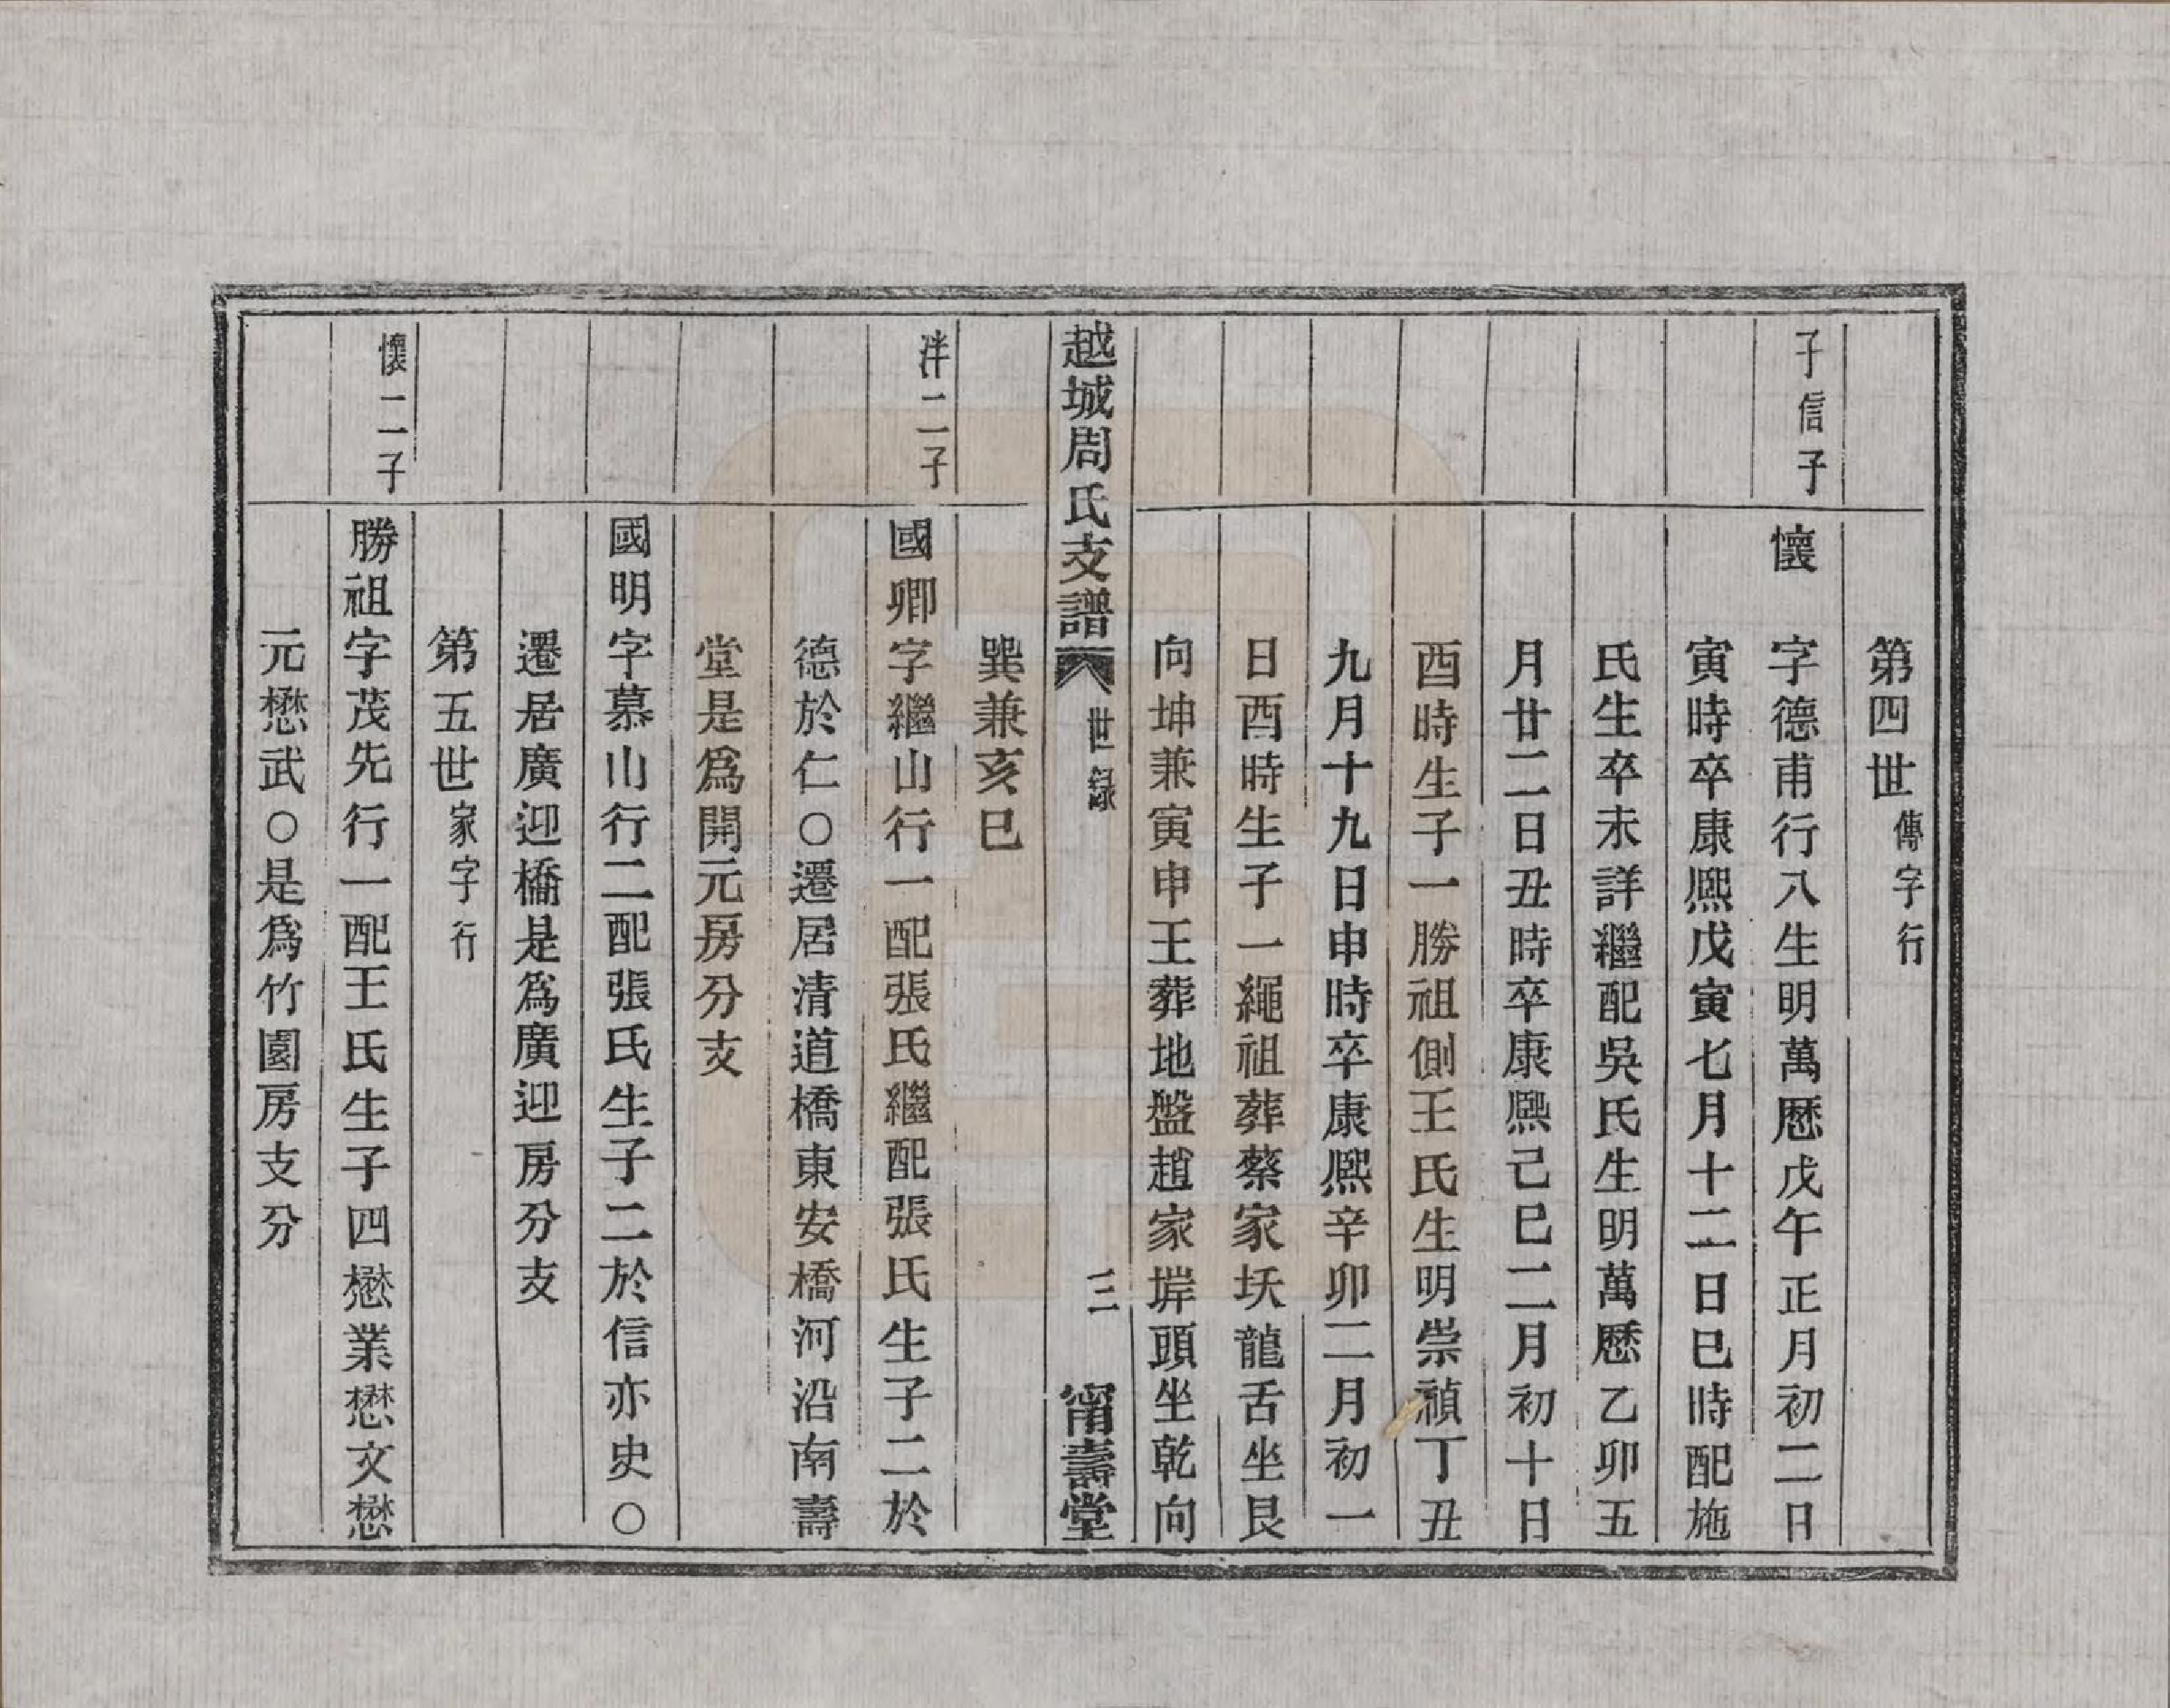 第四世傳字行
子信子
懷　字德甫行八生明萬厯戊午正月初二日
寅時卒康熙戊寅七月十二日巳時配施
氏生卒未詳繼配吳氏生明萬厯乙卯五
月廿二日丑時卒康熙己巳二月初十日
酉時生子一勝祖側王氏生明崇禎丁丑
九月十九日申時卒康熙辛卯二月初一
日酉時生子一繩祖葬蔡家㘰龍舌坐艮
向坤兼寅申王葬地盤趙家塂頭坐乾向
越城周氏支譜 世錄 三 甯壽堂
巽兼亥巳
泮二子
國卿字繼山行一配張氏繼配張氏生子二於
德於仁○遷居清道橋東安橋河沿南壽
堂是爲開元房分支
國明字慕山行二配張氏生子二於信亦史○
遷居廣迎橋是爲廣迎房分支
第五世家字行
懷二子
勝祖字茂先行一配王氏生子四懋業懋文懋
元懋武○是爲竹園房支分